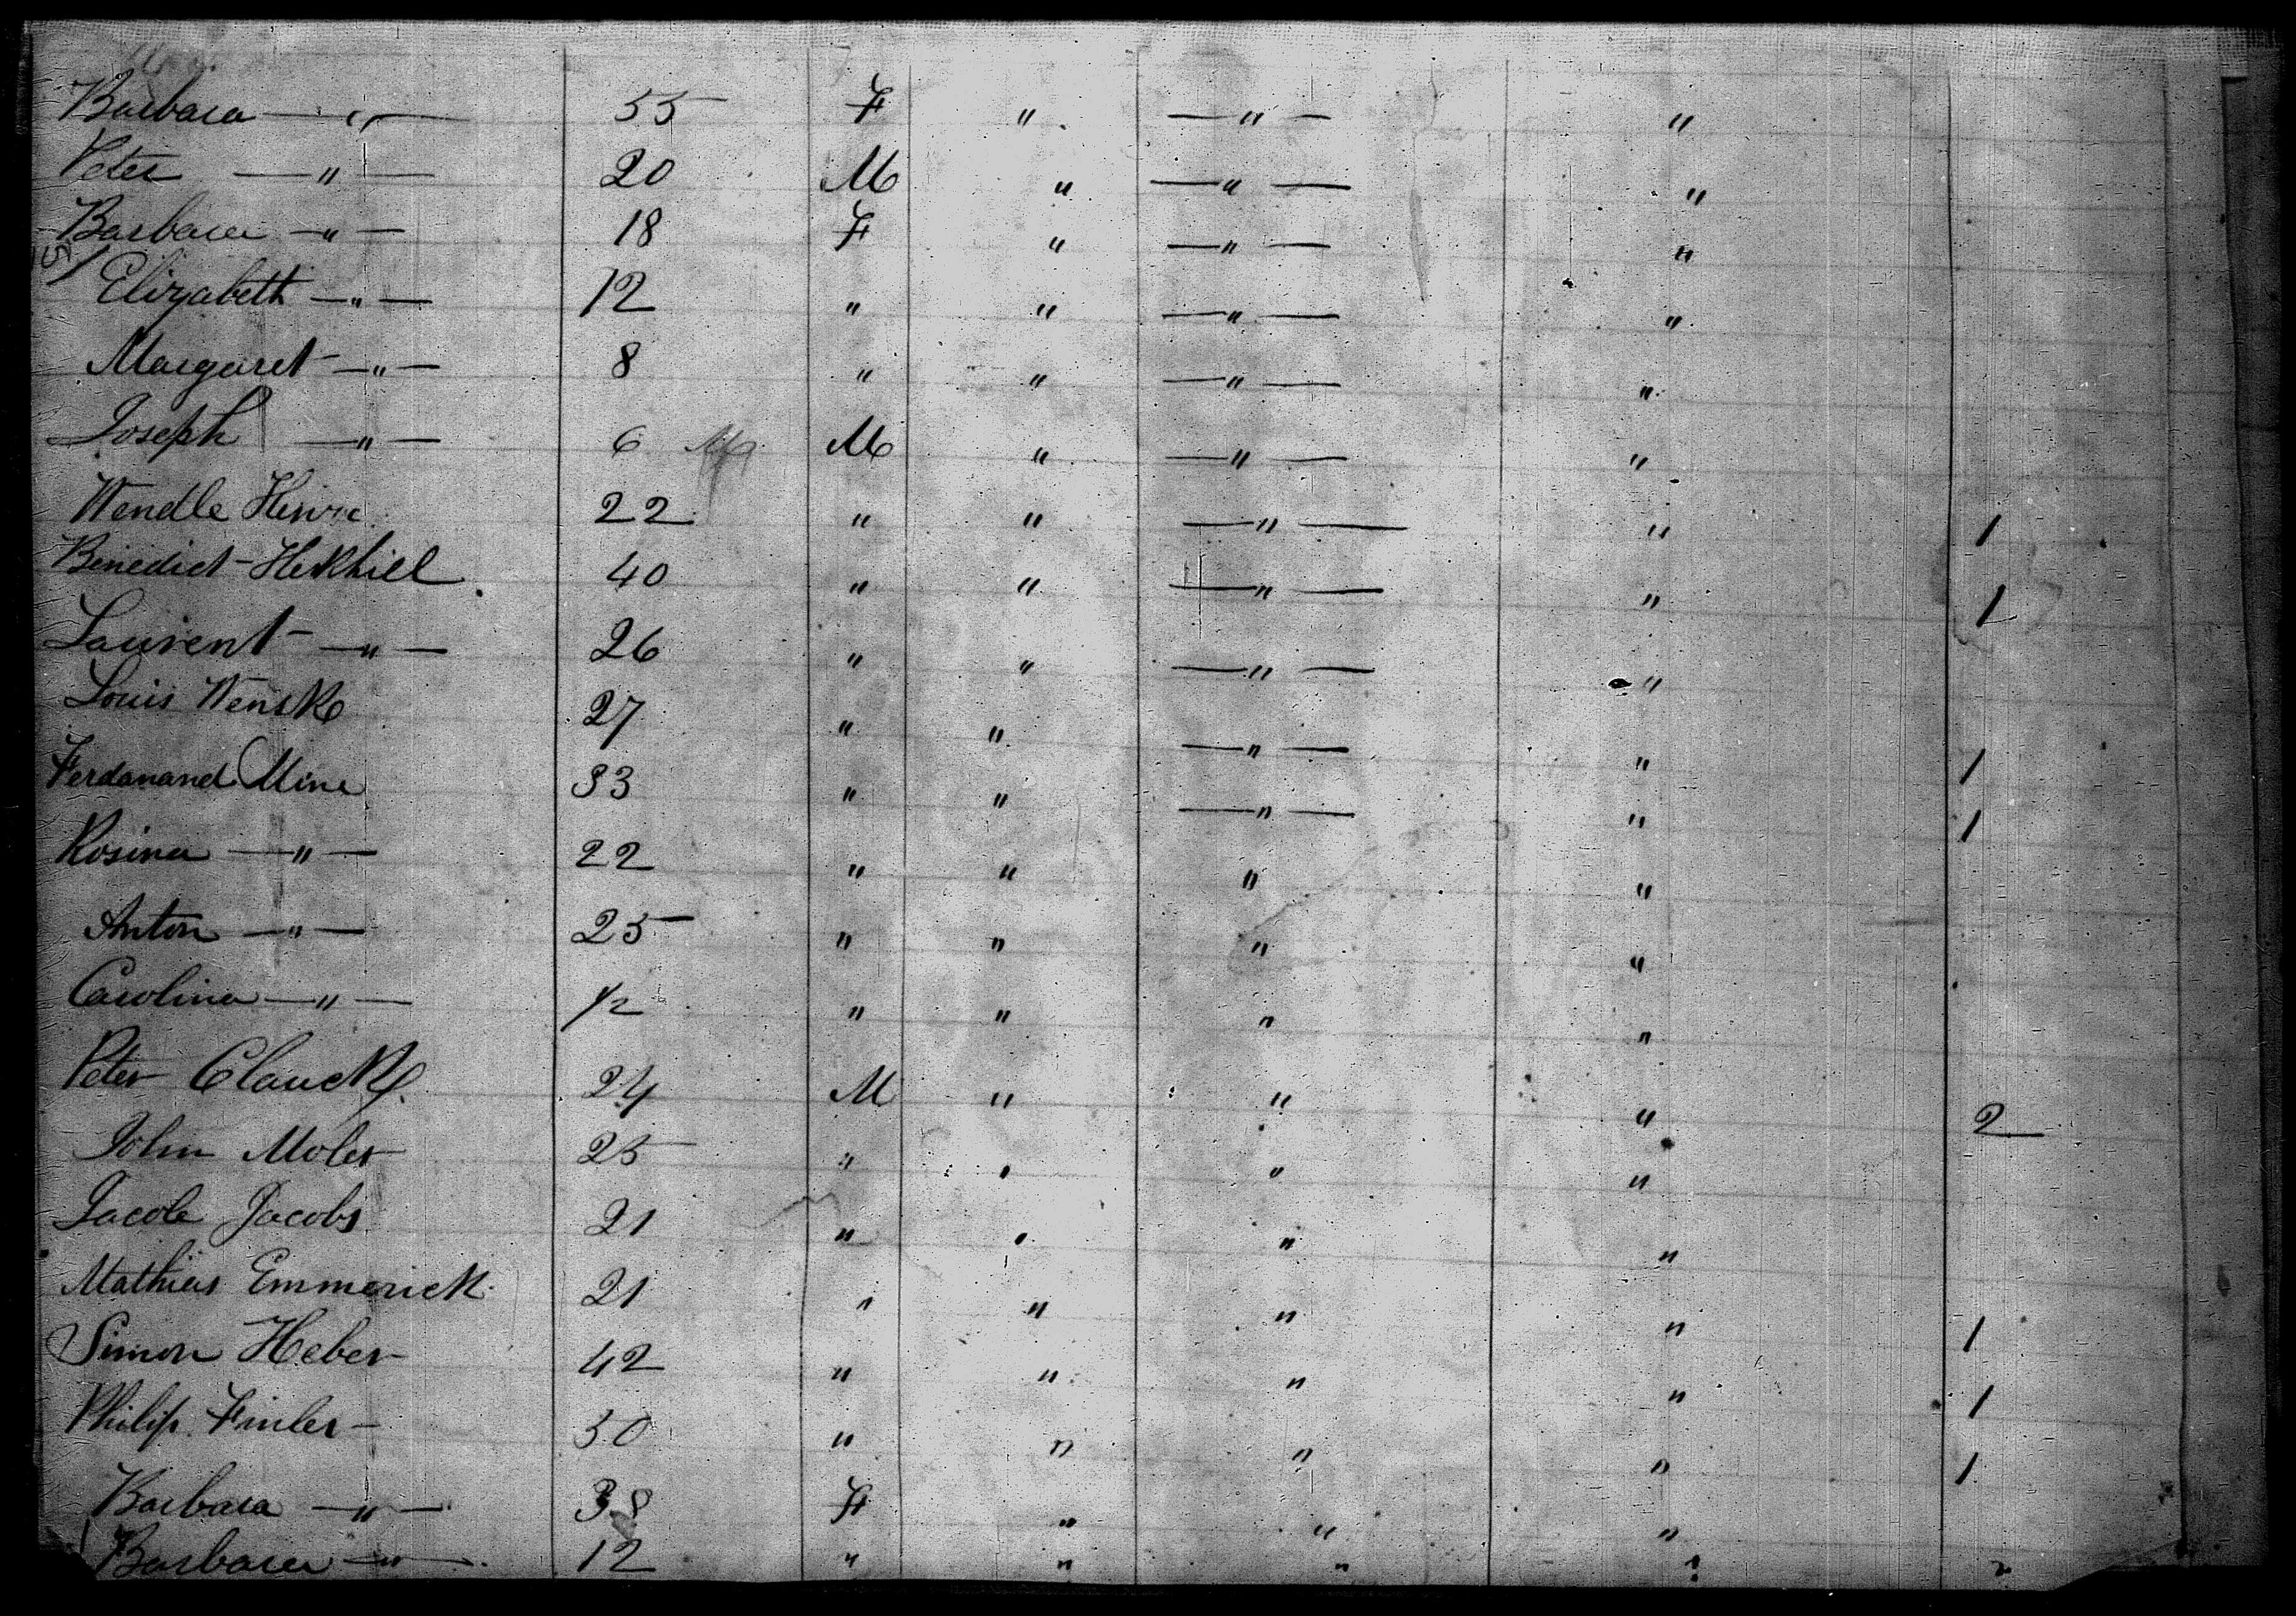 Barbara — " — 55 F " — " — "
Peter — " — 20 M " — " — "
Barbara — " — 18 F " — " — "
Elizabeth — " — 12 " " — " — "
Margaret — " — 8 " " — " — "
Joseph — " — 6 M " — " — "
Wendle 22 " " — " — " 1
Benedict 40 " " — " — " 1
Laurent — " — 26 " " — " — "
Louis Wenske 27 " " — " — " 1
Ferdanand Mine 33 " " — " — " 1
Rosina — " — 22 " " " "
Anton — " — 25 " " " "
Carolina — " — 1/2 " " " "
Peter 24 M " " " 2
John Moler 25 " " " "
Jacob Jacobs 21 " " " "
Mathias Emmerick 21 " " " " 1
Simon Heber 42 " " " " 1
Philip Finler 50 " " " " 1
Barbara — " — 38 F " " "
Barbara — " — 12 " " " "